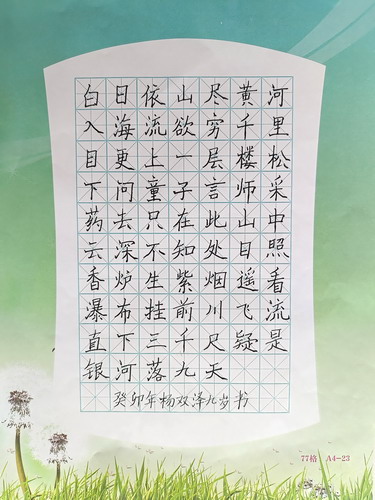 白日依山尽黄河
入海流欲穷千里
目更上一层楼松
下问童子言师采
药去只在此山中
云深不知处日照
香炉生紫烟遥看
瀑布挂前川飞流
直下三千尺疑是
银河落九天
癸卯年杨双泽九岁书
77格 A4-23